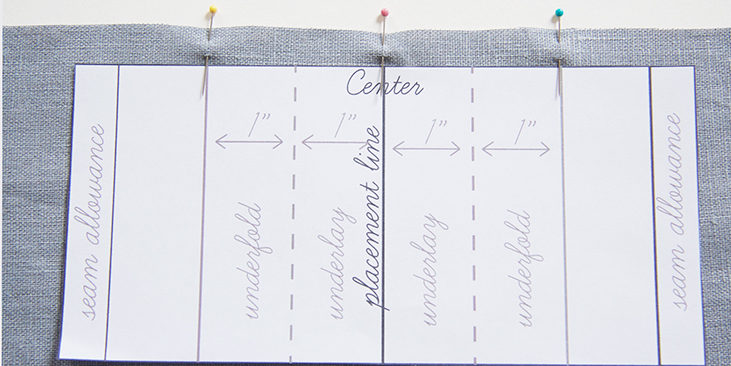 Center
1"
1"
1"
1"
seam allowance
underfold
underlay
placement line
underlay
underfold
seam allowance